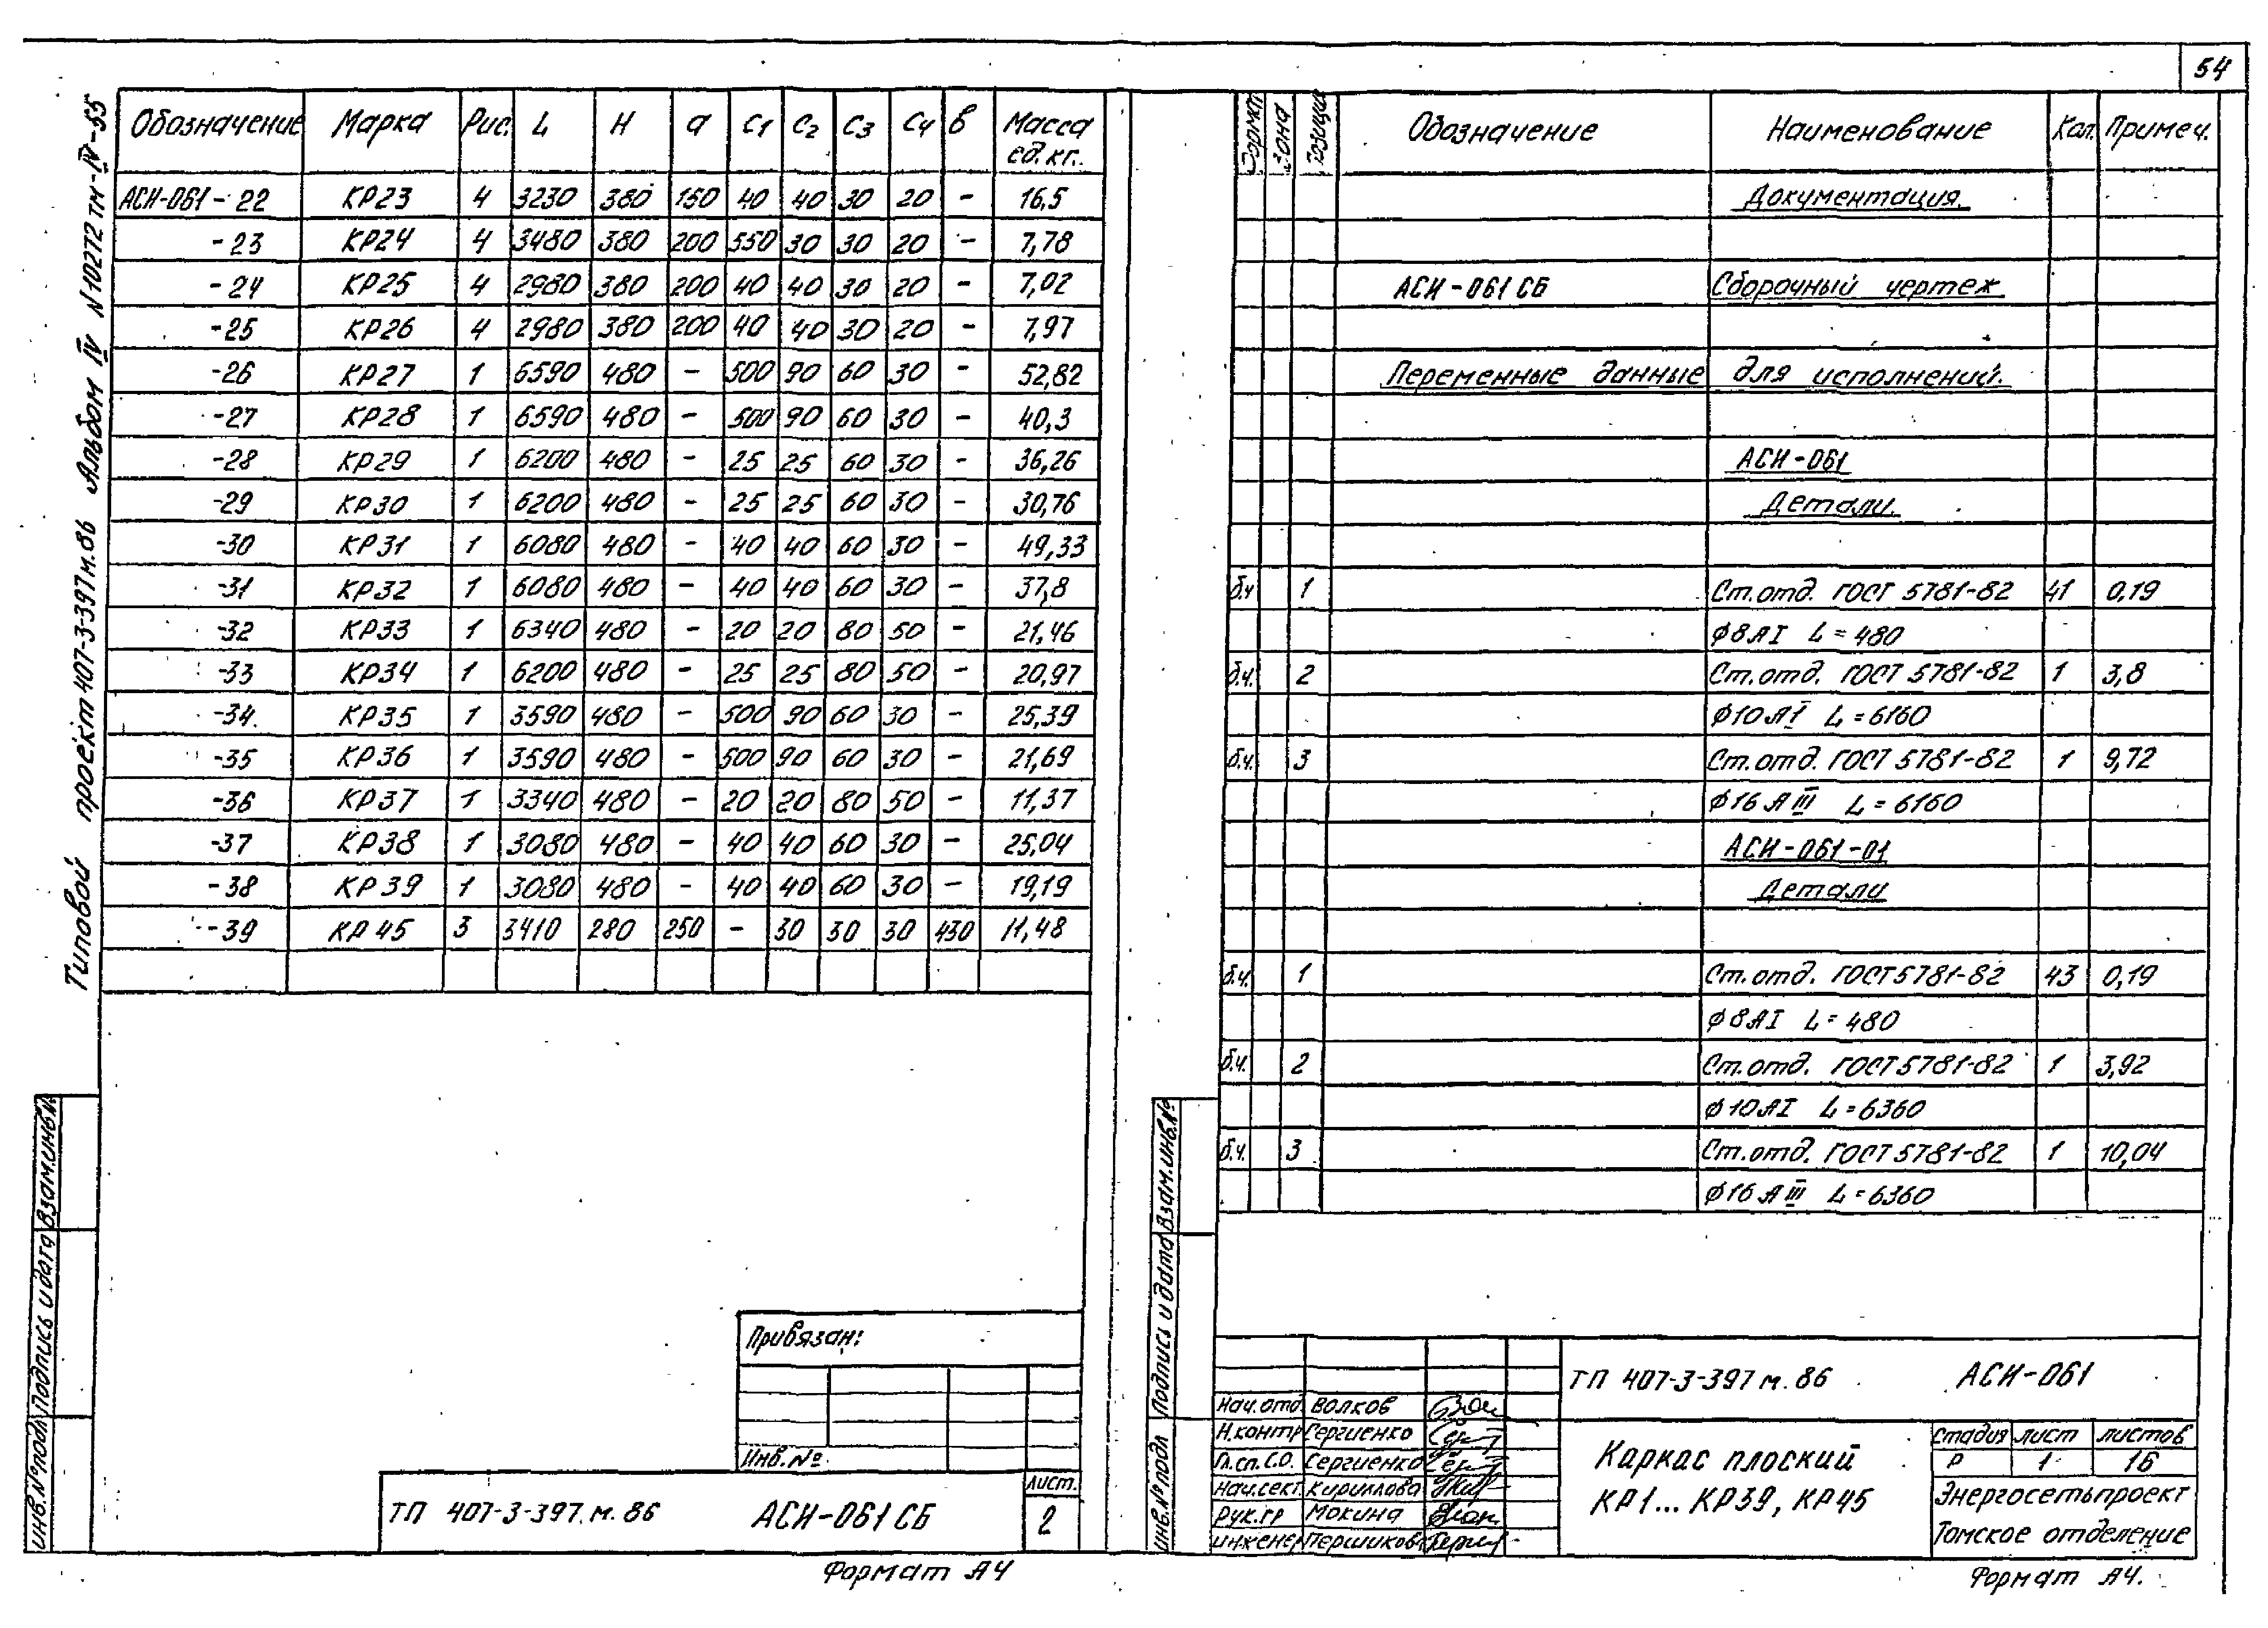 54
Типовой проект 407-3-397м.86 Альбом IV N10272тм-IV-55
Обозначение Марка Рис. L H a C1 C2 C3 C4 в Масса ед.кг.
АСИ-061-22 КР23 4 3230 380 150 40 40 30 20 - 16,5
-23 КР24 4 3480 380 200 550 30 30 20 - 7,78
-24 КР25 4 2980 380 200 40 40 30 20 - 7,02
-25 КР26 4 2980 380 200 40 40 30 20 - 7,97
-26 КР27 1 6590 480 - 500 90 60 30 - 52,82
-27 КР28 1 6590 480 - 500 90 60 30 - 40,3
-28 КР29 1 6200 480 - 25 25 60 30 - 36,26
-29 КР30 1 6200 480 - 25 25 60 30 - 30,76
-30 КР31 1 6080 480 - 40 40 60 30 - 49,33
-31 КР32 1 6080 480 - 40 40 60 30 - 37,8
-32 КР33 1 6340 480 - 20 20 80 50 - 21,46
-33 КР34 1 6200 480 - 25 25 80 50 - 20,97
-34 КР35 1 3590 480 - 500 90 60 30 - 25,39
-35 КР36 1 3590 480 - 500 90 60 30 - 21,69
-36 КР37 1 3340 480 - 20 20 80 50 - 11,37
-37 КР38 1 3080 480 - 40 40 60 30 - 25,04
-38 КР39 1 3080 480 - 40 40 60 30 - 19,19
-39 КР45 3 3410 280 250 - 30 30 30 430 11,48
Привязан:
Инв.№
ТП 407-3-397.м.86 АСИ-061 СБ
Лист.
2
Формат А4
Инв.№подл Подпись и дата Взам.инв.№
Формат Зона Позиция Обозначение Наименование Кол. Примеч.
Документация.
АСИ-061 СБ Сборочный чертеж
Переменные данные для исполнений.
АСИ-061
Детали.
б.ч 1 Ст.отд. ГОСТ 5781-82 41 0,19
ф8АI L=480
б.ч. 2 Ст.отд. ГОСТ 5781-82 1 3,8
ф10АI L=6160
б.ч. 3 Ст.отд. ГОСТ 5781-82 1 9,72
ф16АIII L=6160
АСИ-061-01
Детали
б.ч. 1 Ст.отд. ГОСТ 5781-82 43 0,19
ф8АI L=480
б.ч. 2 Ст.отд. ГОСТ 5781-82 1 3,92
ф10АI L=6360
б.ч. 3 Ст.отд. ГОСТ 5781-82 1 10,04
ф16АIII L=6360
Инв.№подл Подпись и дата Взам.инв.№
ТП 407-3-397м.86 АСИ-061
Нач.отд. Волков
Н.контр Сергиенко
Гл.сп.С.О. Сергиенко
Нач.сект. Кириллова
Рук.гр Мокина
инженер Першиков
Каркас плоский
КР1... КР39, КР45
Стадия лист листов
Р 1 16
Энергосетьпроект
Томское отделение
Формат А4.